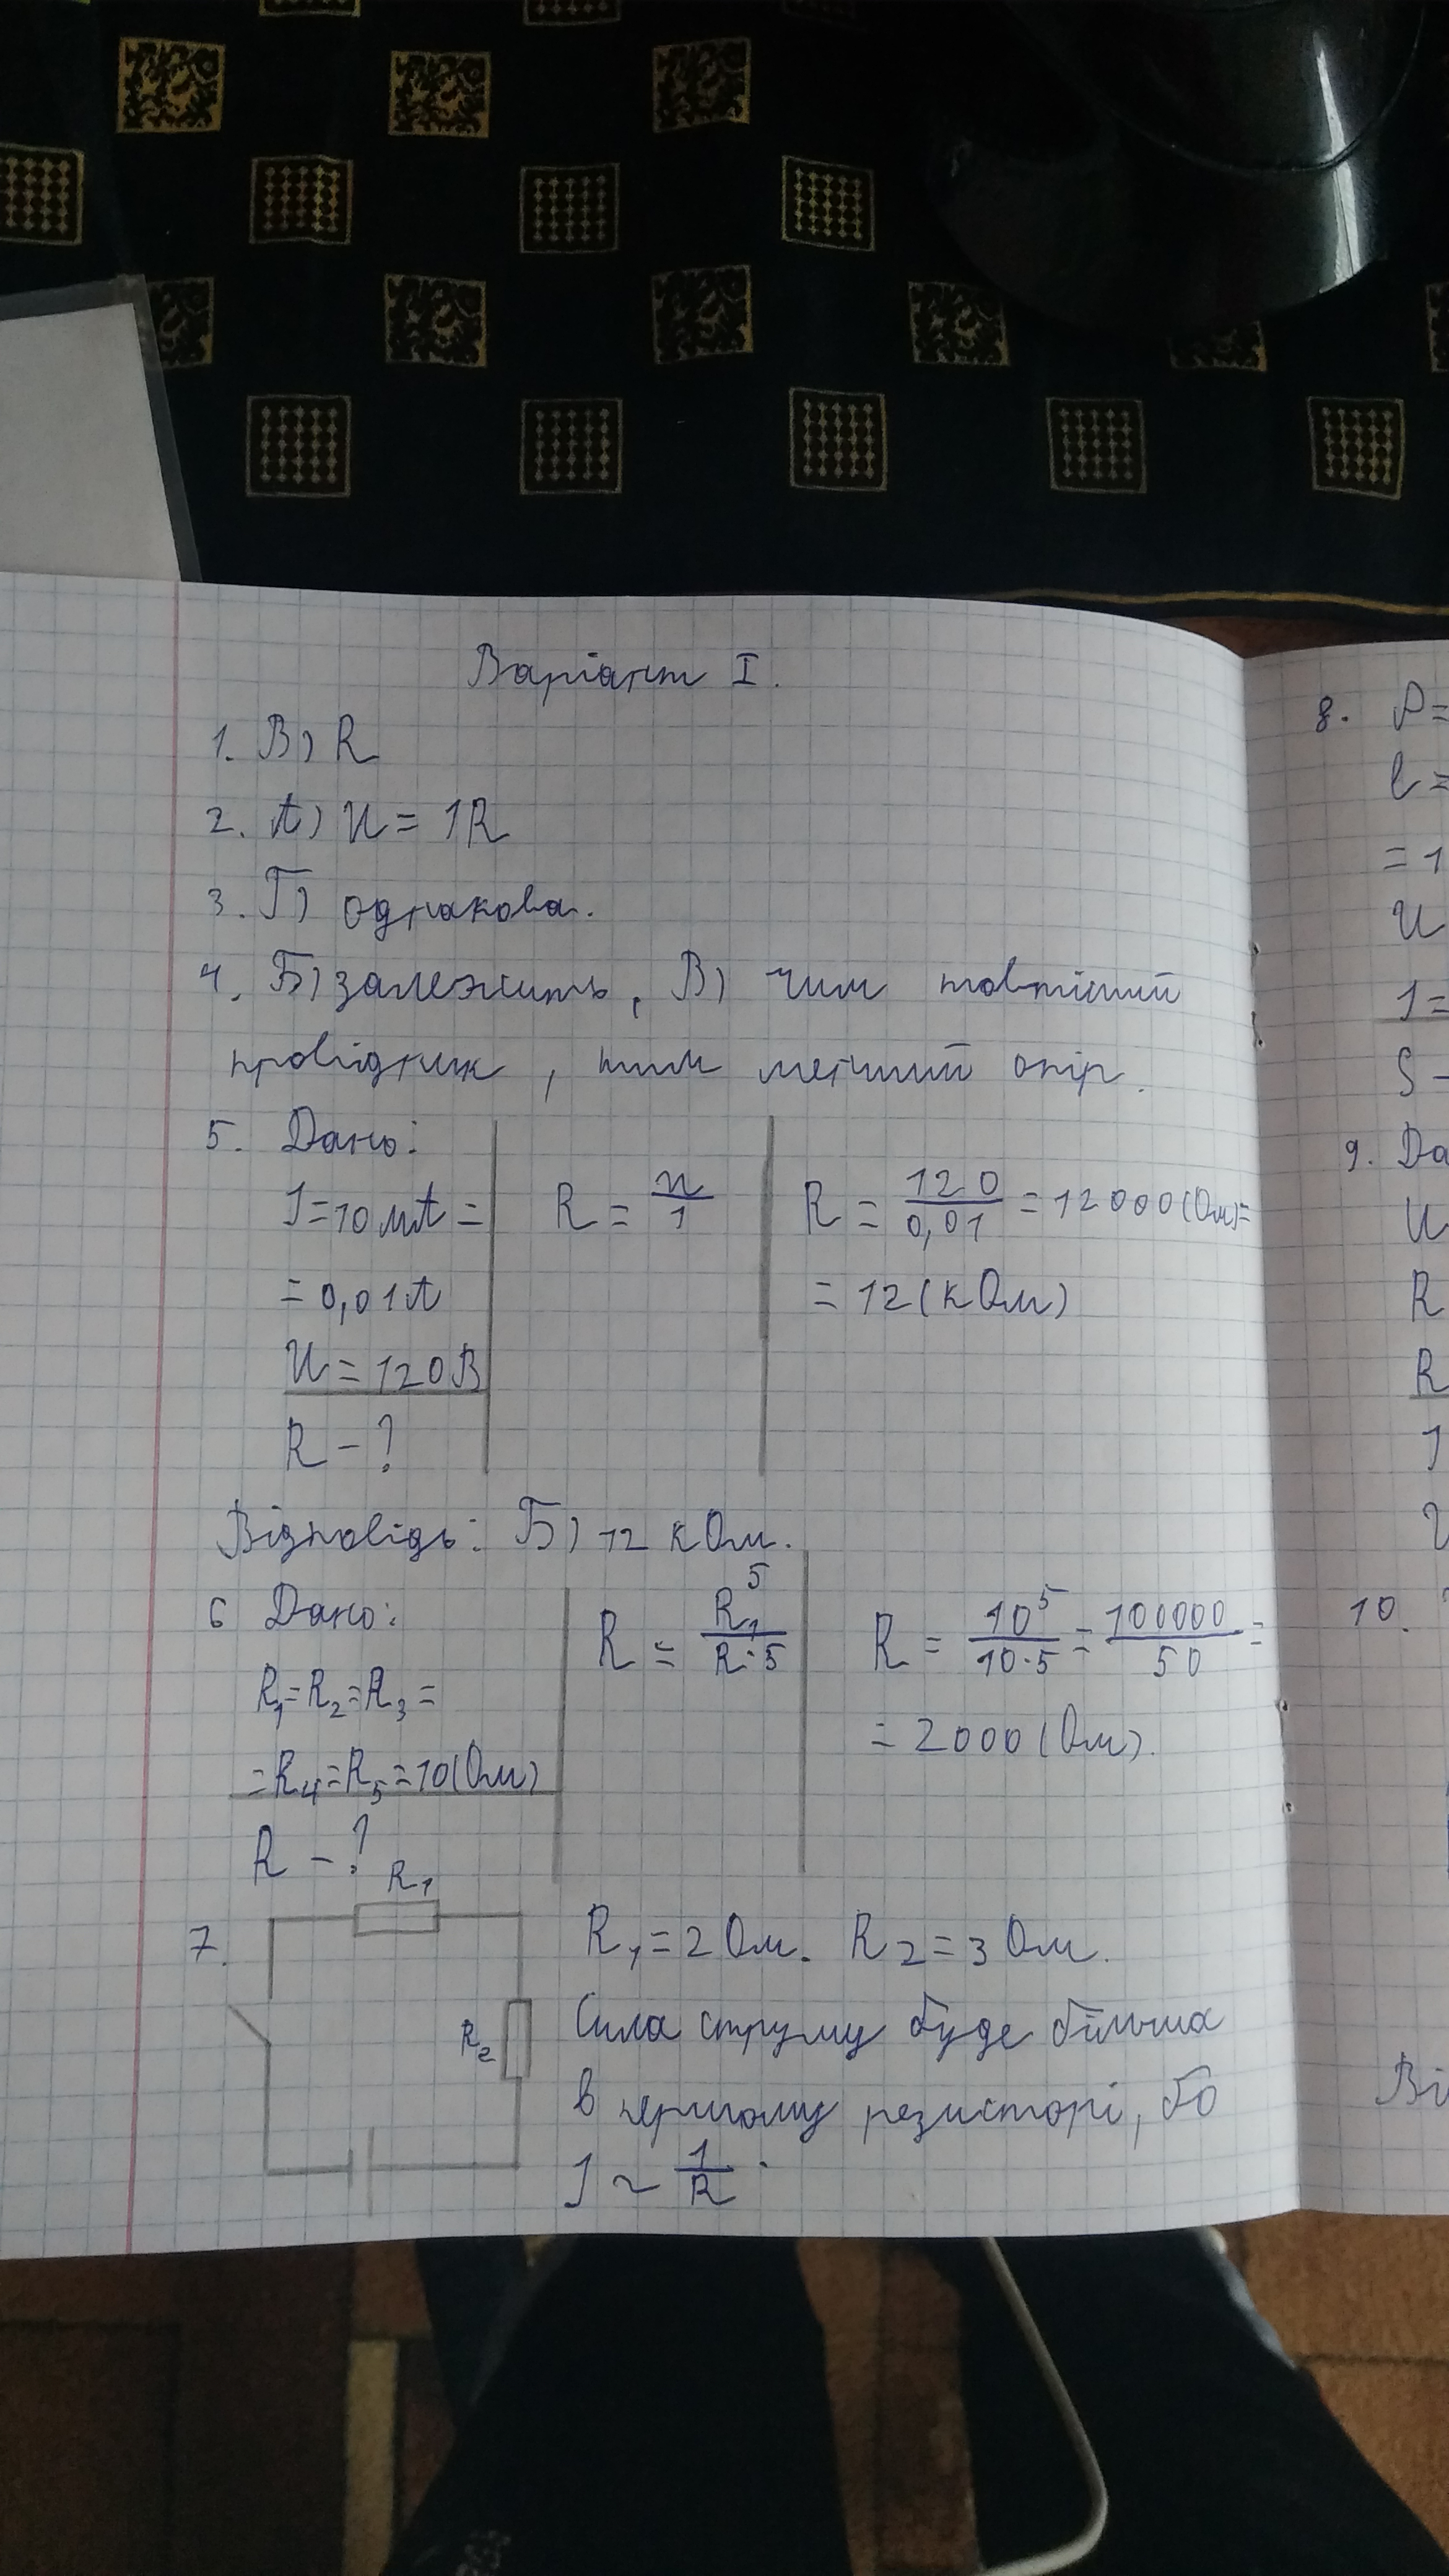 Варіант I.
1. В) R
2. А) U = IR
3. Г) однакова.
4. Б) залежить, В) чим товстіший
провідник, тим менший опір.
5. Дано:
I = 10 мА =
= 0,01 А
U = 120 В
R - ?
R = U/I
R = 120/0,01 = 12000 (Ом) =
= 12 (кОм)
Відповідь: Б) 12 кОм.
6 Дано:
R₁ = R₂ = R₃ =
= R₄ = R₅ = 10 (Ом)
R - ?
R = R₁⁵/R·5
R = 10⁵/10·5 = 100000/50 =
= 2000 (Ом).
7.
R₁
R₂
R₁ = 2 Ом. R₂ = 3 Ом.
Сила струму буде більша
в першому резисторі, бо
I ~ 1/R.
8. ρ =
l =
= 1
U
I =
S -
9. Да
U
R
R
I
U
10.
Ві